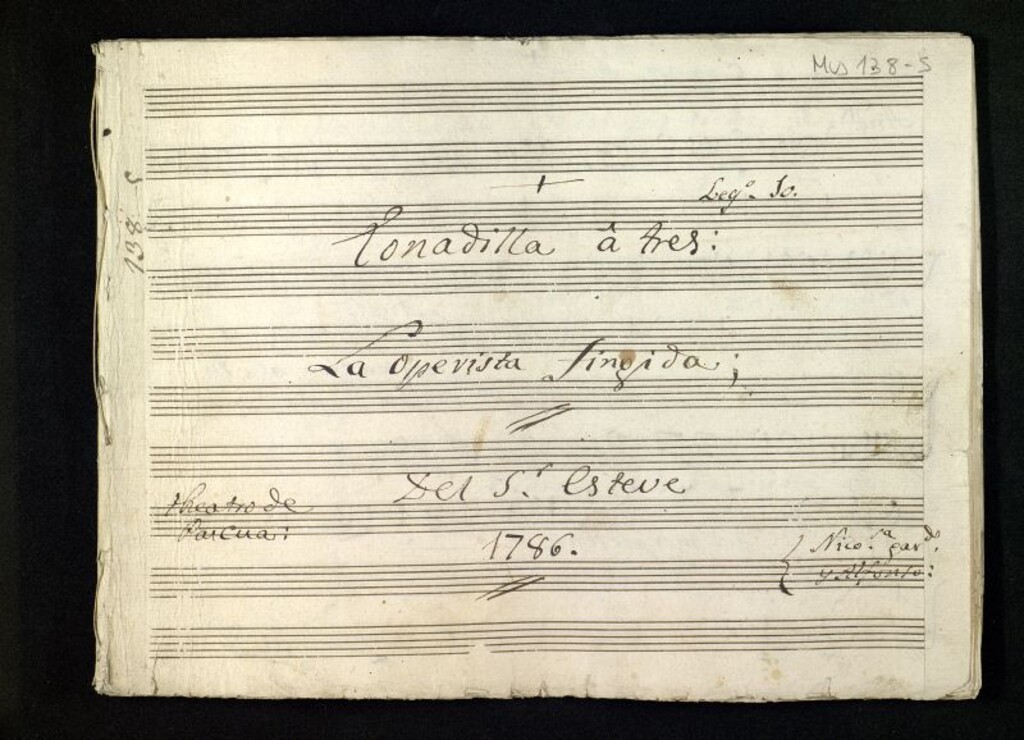 Mus 138-5
138 5
+
Leg.º 10.
Tonadilla â tres:
La Operista fingida;
Del S.r Esteve
theatro de
Pascua:
1786.
Nico.sa gar.do
y Alfonso: